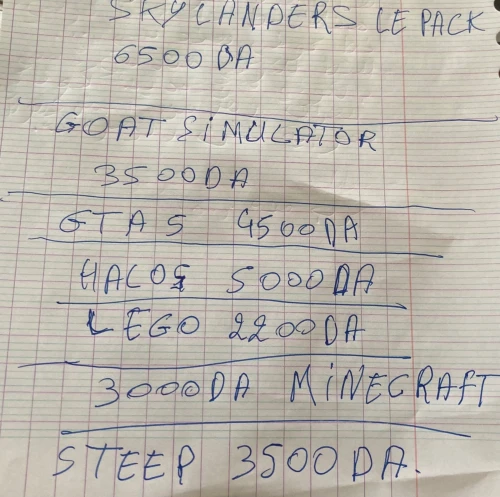 SKYLANDERS LE PACK
6500 DA
GOAT SIMULATOR
3500DA
GTA 5 4500DA
HALO5 5000DA
LEGO 2200DA
3000DA MINECRAFT
STEEP 3500 DA.